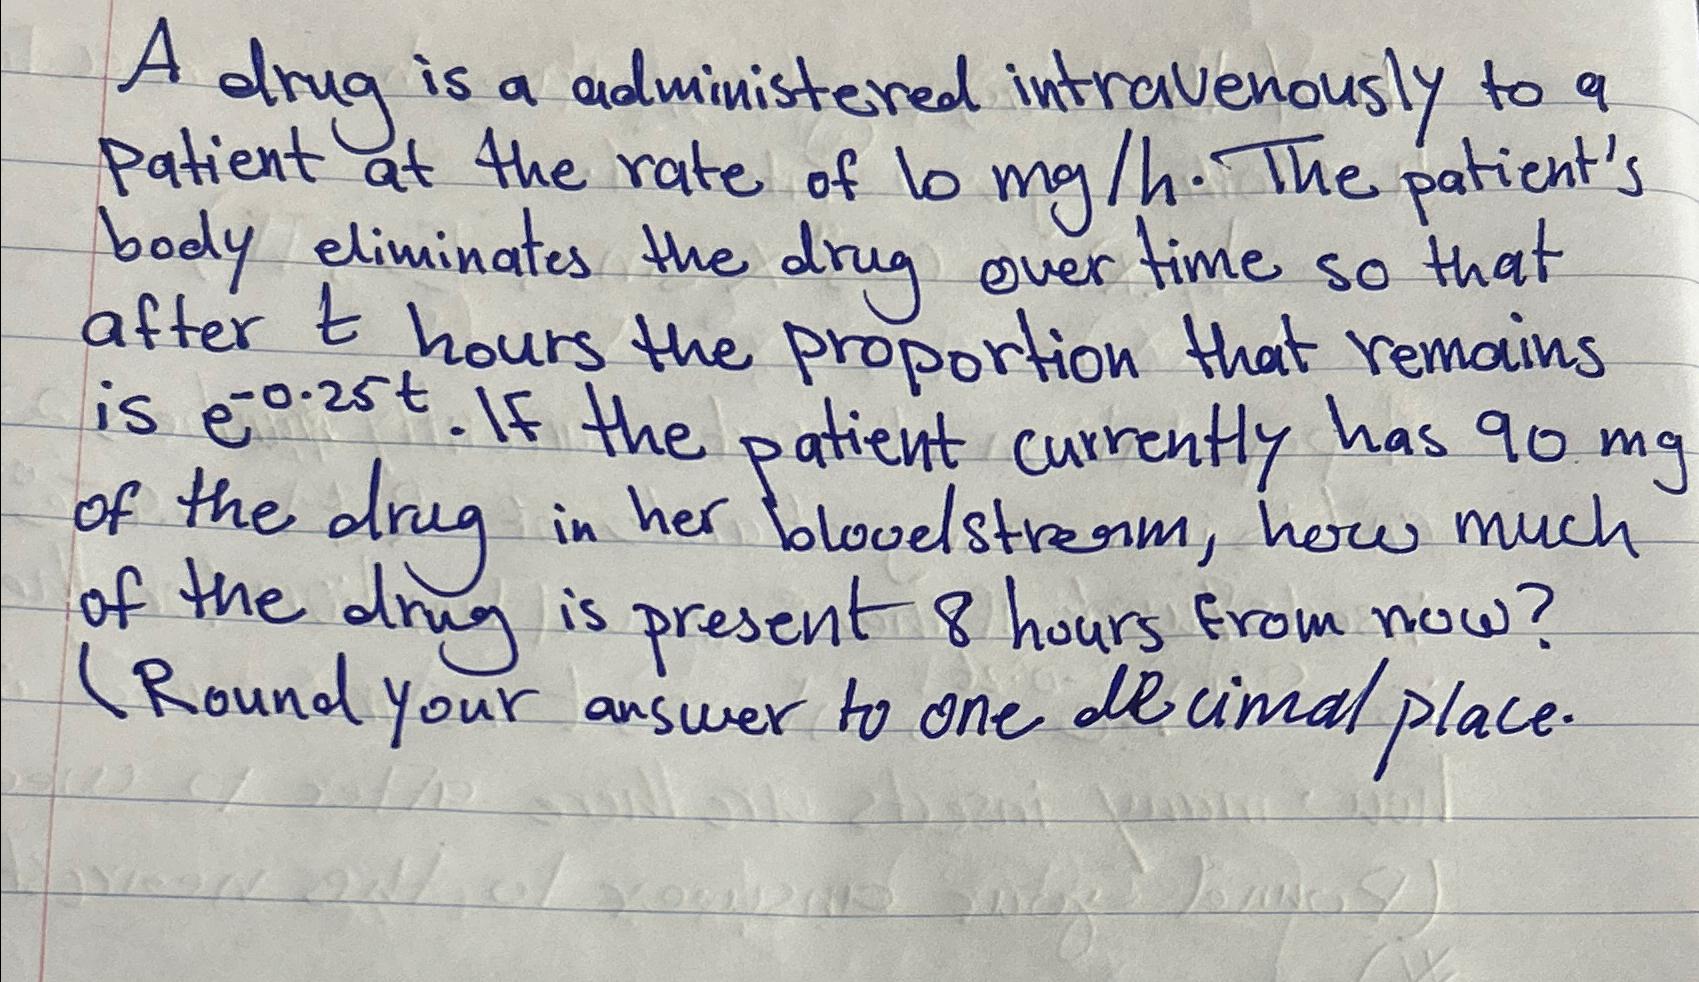 A drug is a administered intravenously to a
patient at the rate of 10 mg/h. The patient's
body eliminates the drug over time so that
after t hours the proportion that remains
is e^-0.25t. If the patient currently has 90 mg
of the drug in her bloodstream, how much
of the drug is present 8 hours from now?
(Round your answer to one decimal place.